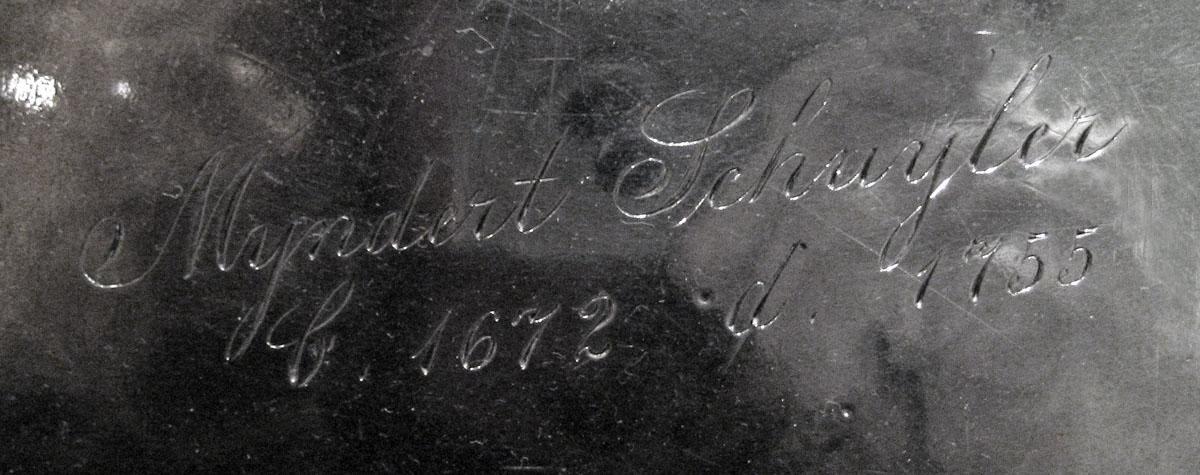 Myndert Schuyler
b. 1672 d. 1755